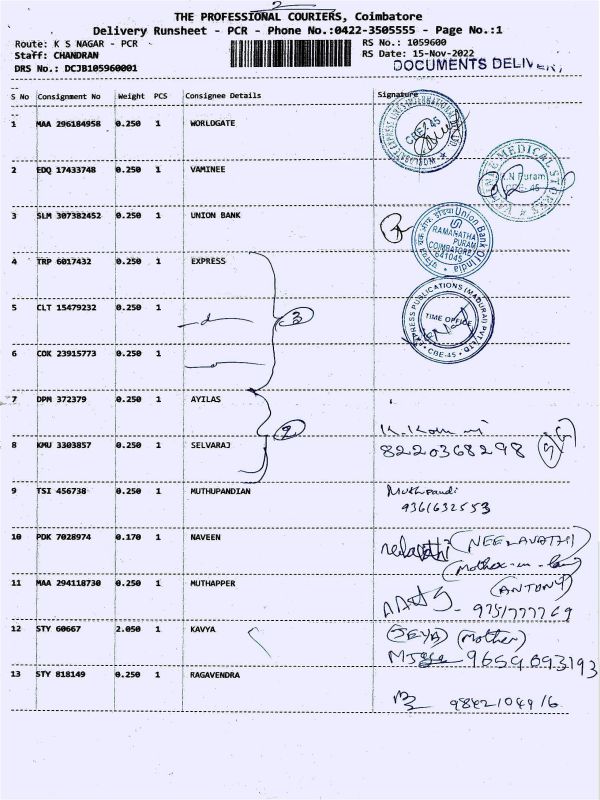 2
THE PROFESSIONAL COURIERS, Coimbatore
Delivery Runsheet - PCR - Phone No.:0422-3505555 - Page No.:1
Route: K S NAGAR - PCR
RS No.: 1059600
Staff: CHANDRAN
RS Date: 15-Nov-2022
DRS No.: DCJB105960001
DOCUMENTS DELIVER
S No Consignment No Weight PCS Consignee Details Signature
1 MAA 296184958 0.250 1 WORLDGATE
CBE-45
2 EDQ 17433748 0.250 1 VAMINEE
MEDICAL STORES
K.N Puram
CBE-45
3 SLM 307382452 0.250 1 UNION BANK
Union Bank Of India
RAMANATHA
PURAM
COIMBATORE
641045
4 TRP 6017432 0.250 1 EXPRESS
5 CLT 15479232 0.250 1
3
EXPRESS PUBLICATIONS (MADURAI) PVT LTD
TIME OFFICE
CBE-45
6 COK 23915773 0.250 1
7 DPM 372379 0.250 1 AYILAS
2
8 KMU 3303857 0.250 1 SELVARAJ
8220368298
9 TSI 456738 0.250 1 MUTHUPANDIAN
Muthpandi
9361632553
10 PDK 7028974 0.170 1 NAVEEN
(NEELAVATHI)
(Mother-in-law)
11 MAA 294118730 0.250 1 MUTHAPPER
(ANTONY)
9751777769
12 STY 60667 2.050 1 KAVYA
(JEYA) (Mother)
9659693193
13 STY 818149 0.250 1 RAGAVENDRA
9842104916